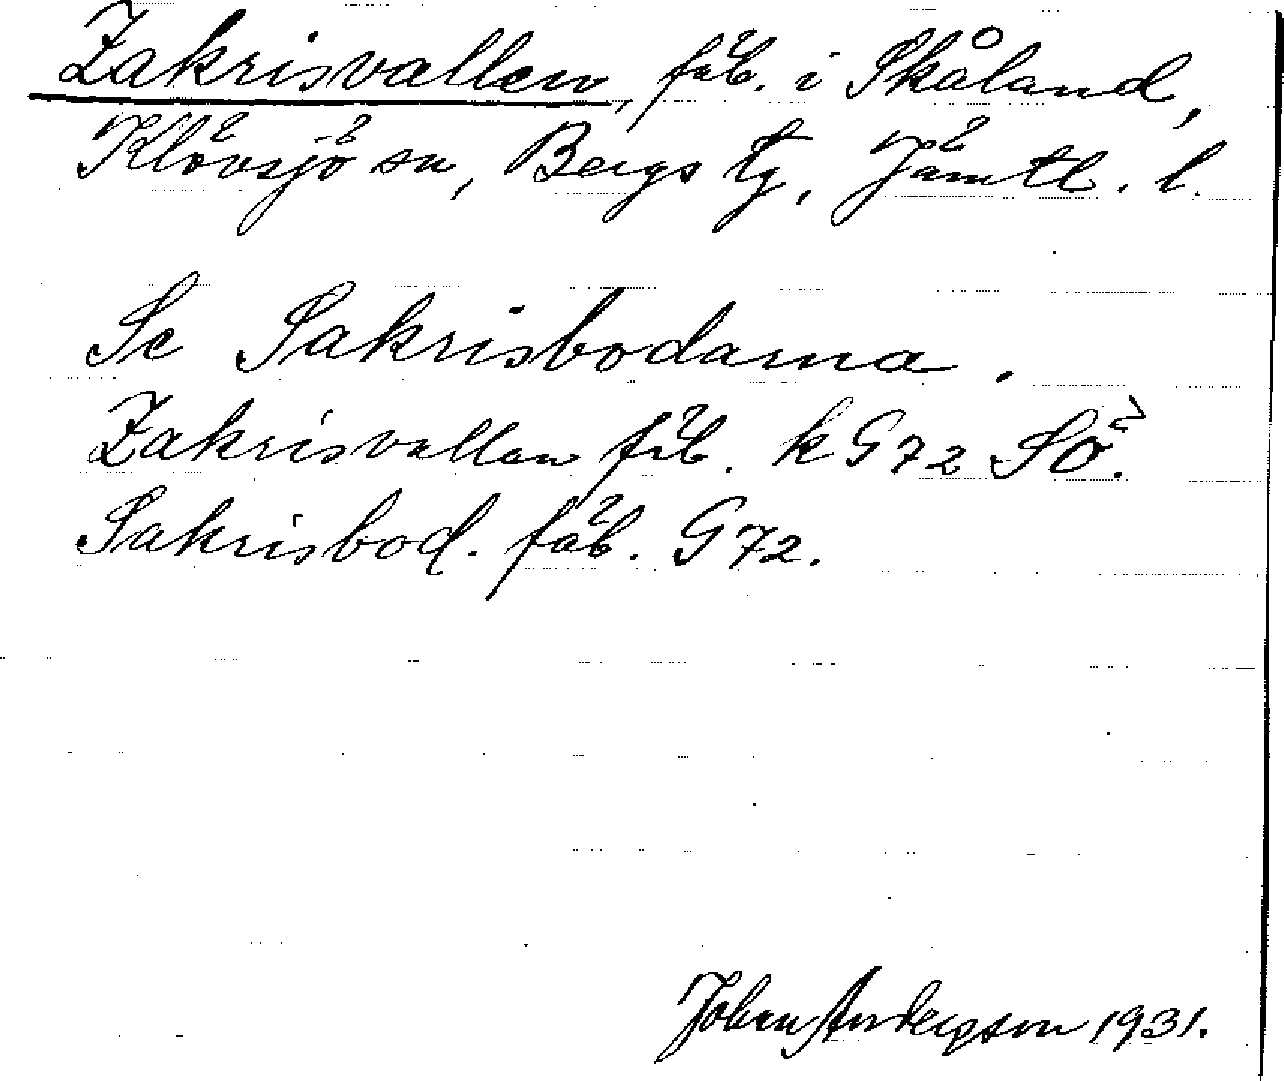 Zakrisvallen, fäb. i Skåland,
Klövsjö sn, Bergs tg, Jämtl. l.
Se Sakrisbodarna.
Zakrisvallen fäb. k G72 SÖ.
Sakrisbod. fäb. G72.
Johan Anderson 1931.